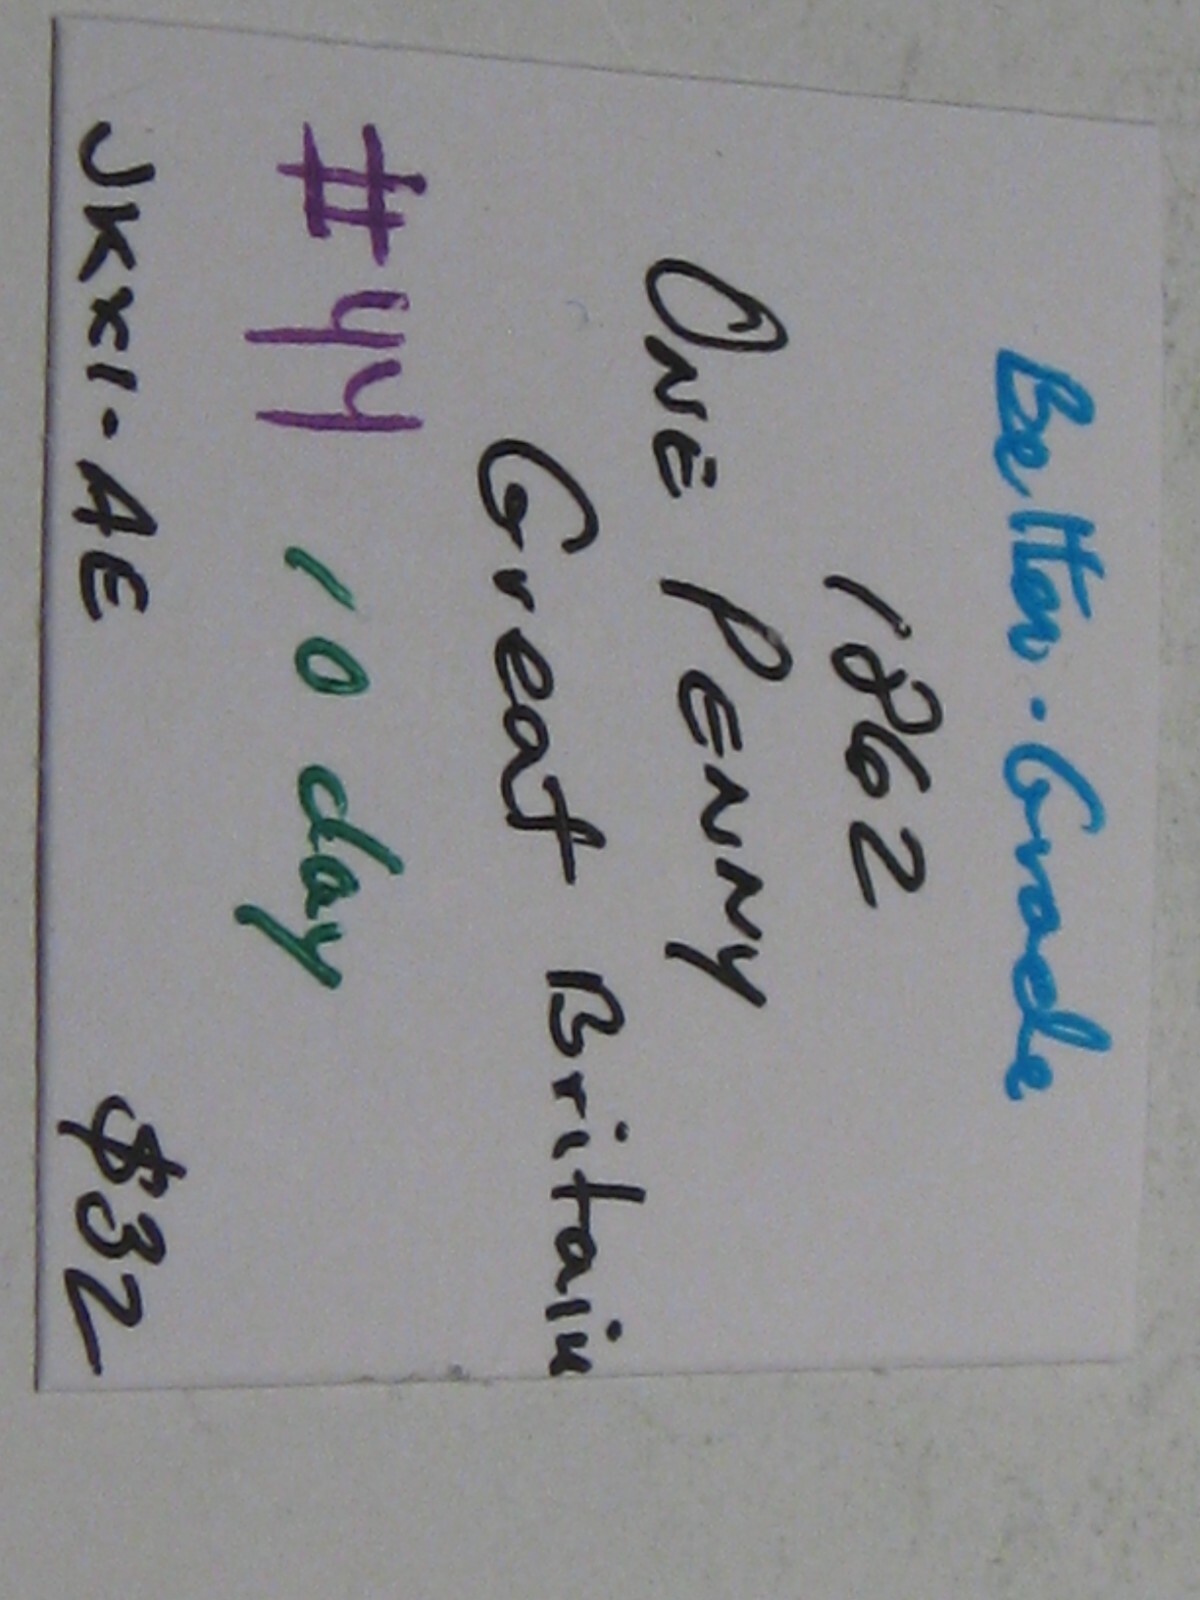 Better-Grade
1862
ONE PENNY
Great Britain
#44 10 day
JKX1-AE $32